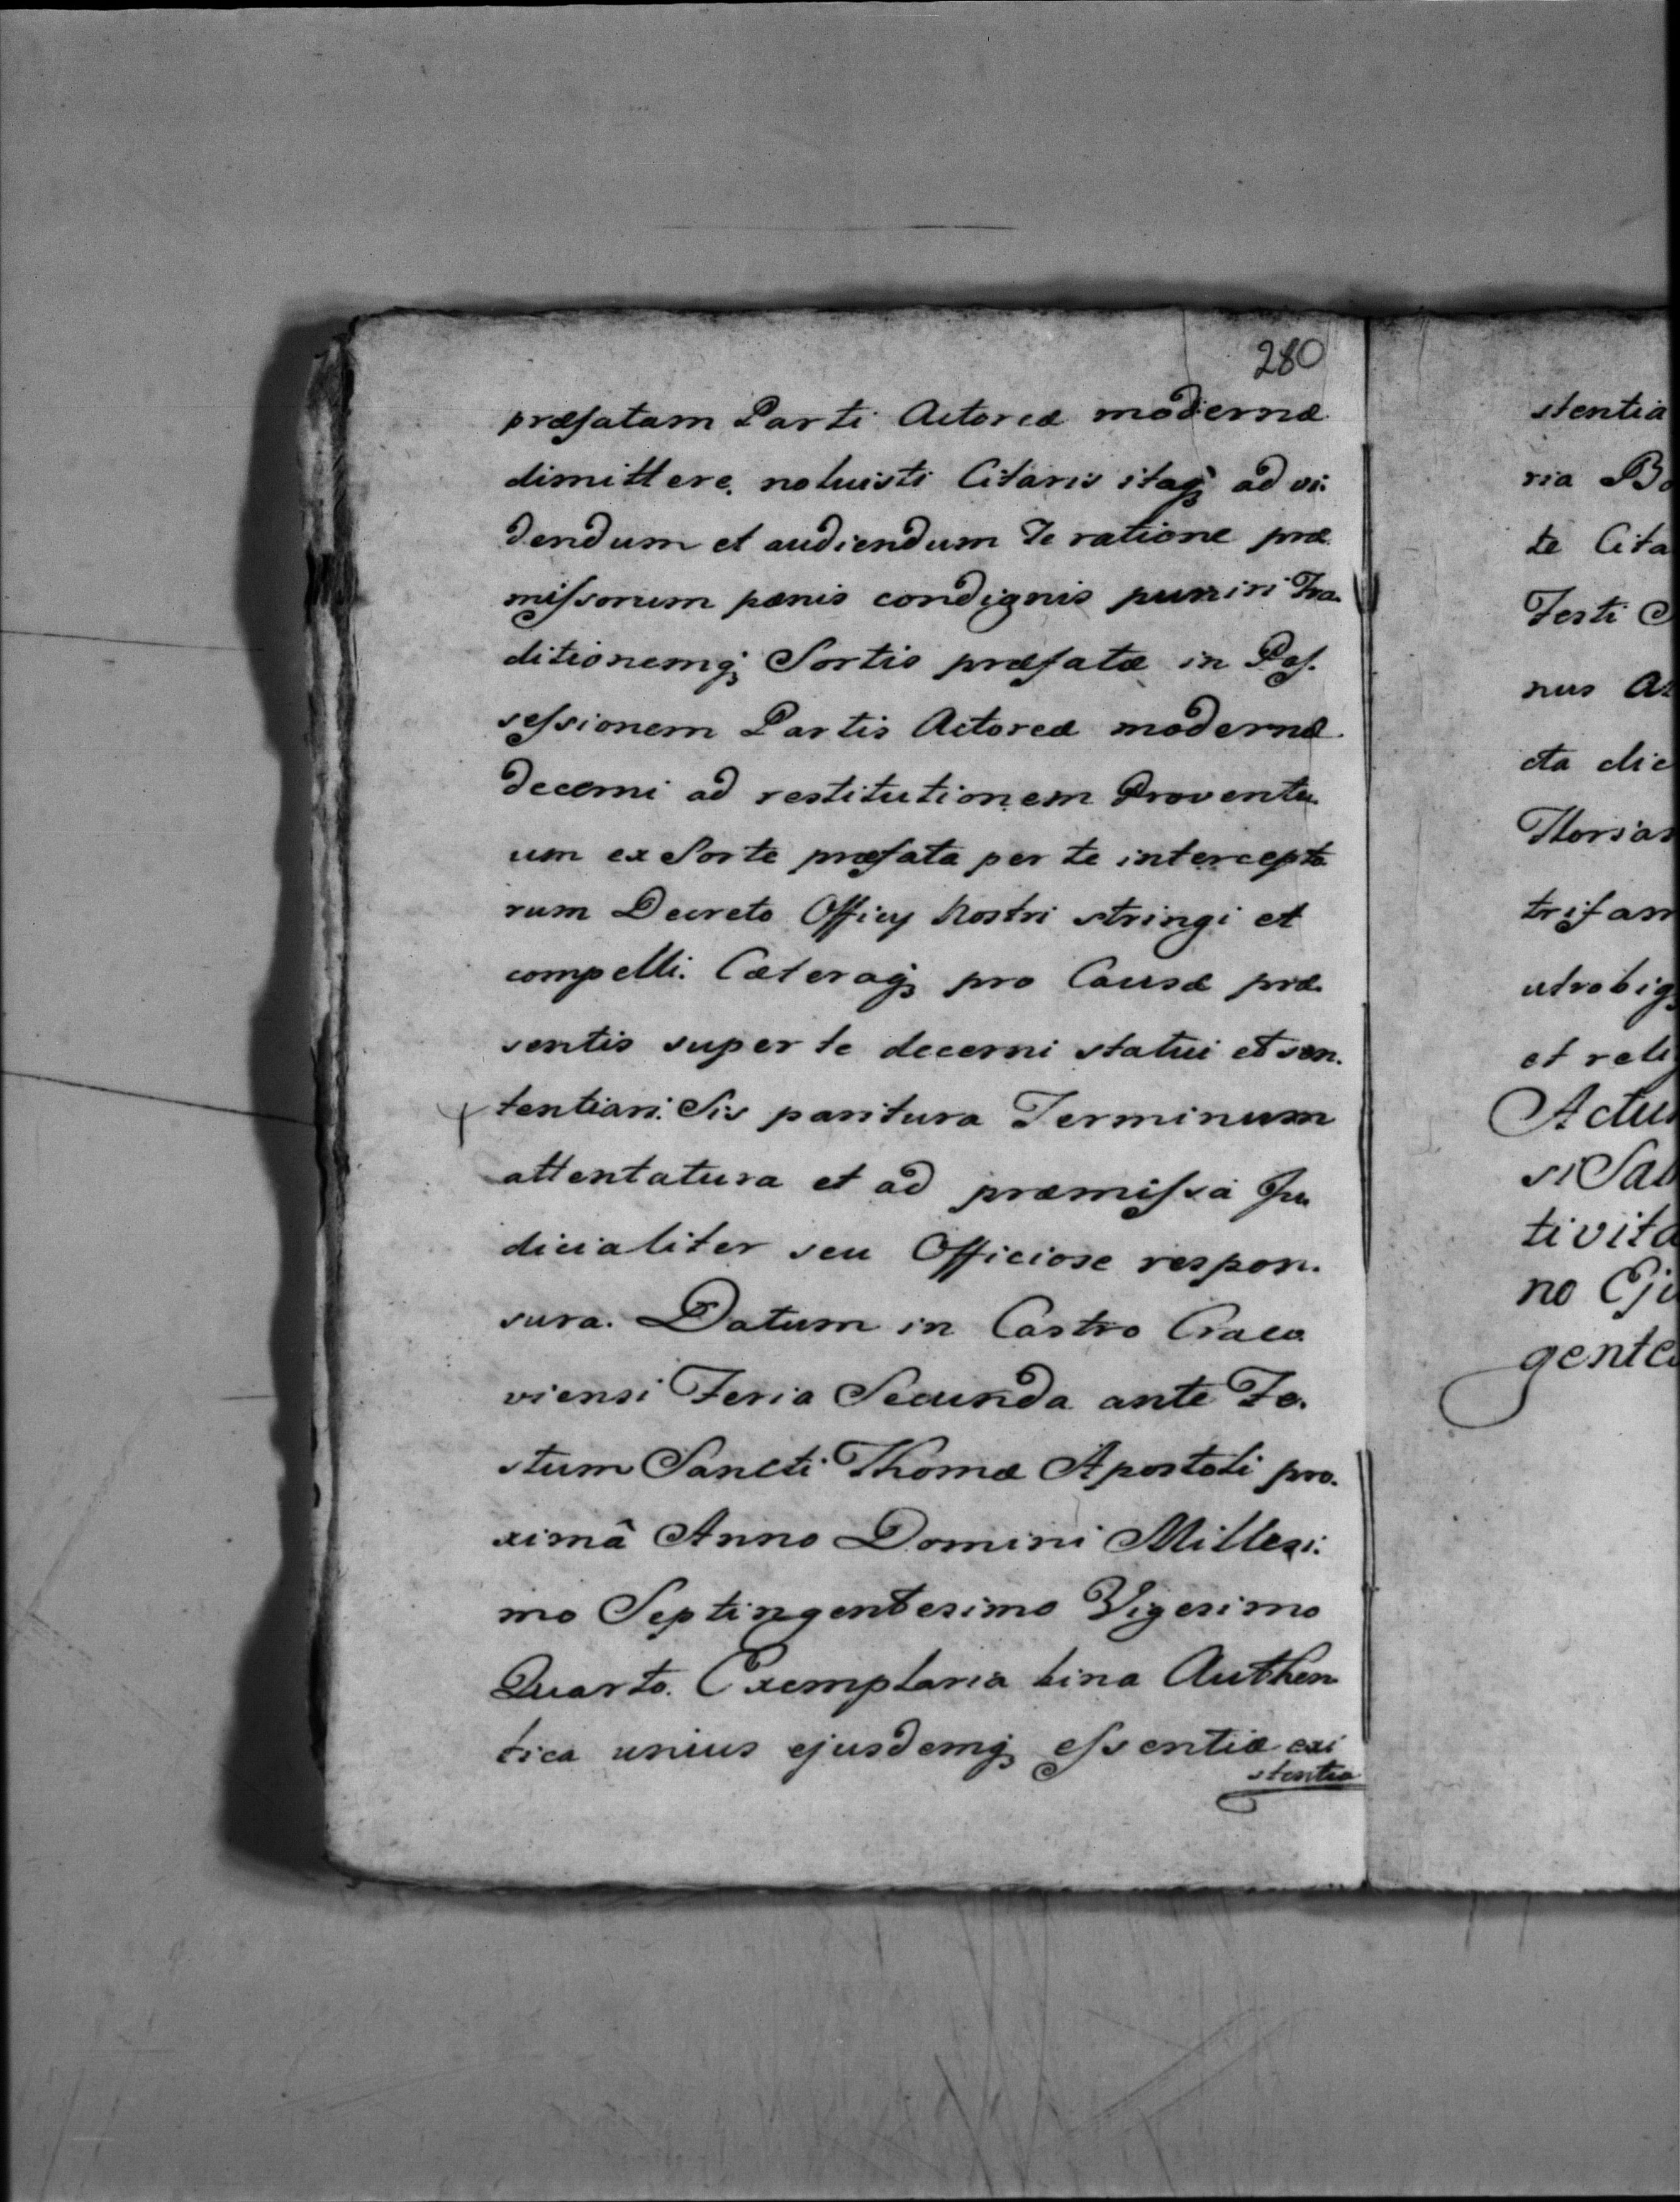 280
præfatam Parti Actoreæ modernæ
dimittere, noluisti Citaris itaq₃ ad vi:
dendum et audiendum Te ratione præ
mifsorum pœnis condignis puniri Tra
ditionemq₃ Sortis præfatæ in Pof.
sefsionem Partis Actoreæ modernæ.
decerni ad restitutionem Proventu
um ex Sorte præfata per te intercepto
rum Decreto Officy Nostri stringi et
compelli. Cæteraq₃ pro Causæ præ
sentis super te decerni statui et sen.
tentiari. Sis paritura Terminum
attentatura et ad præmifsa Ju
dicialiter seu Officiose respon.
sura. Datum in Castro Craco
viensi Feria Secunda ante Fe.
stum Sancti Thomæ Apostoli pro.
ximâ Anno Domini Millesi:
mo Septingentesimo Vigesimo
Quarto. Exemplaria bina Authen
tica unius ejusdemq₃ efsentiæ exi
stentia
stentia
ria Bo
te Cita
Festi C
nus A
cta die
trifam
utrobiq₃
et reli
Actu
si Sab
tivita
no Eju
gente